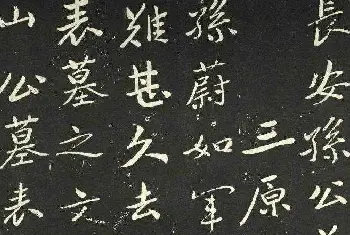 長安孫公
三原
孫蔚如軍
難甚久去
表墓之文
山公墓表